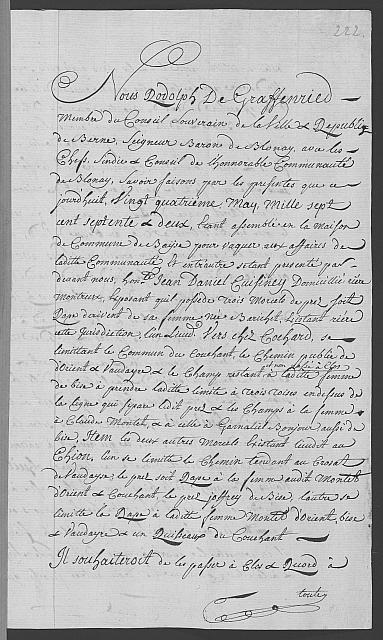 222.
Nous Rodolph De Graffenried
Membre du Conseil Souverain de la Ville & Republiq
de Berne, Seigneur Baron de Blonay, avec les
Chefs, Sindic & Conseil de l'honnorable Communauté
de Blonay, Scavoir faisons par les presentes que ce
jourdhuit, Vingt quatrième May, Mille sept
cent septente & deux, Etant assemblé en la maison
de Commune de pour vaquer aux affaires de
laditte Communauté & entr'autre s'etant presenté par
devant nous, Jean Daniel Domicilié riere
Montreux, Exposant qu'il possede trois Morcels de prez soit
Rape derivent de sa femme Née Existant riere
cette Jurisdiction, L'un Lieud. Vers chez Cochard, se
limittant le Commun du Couchant, le Chemin public de
d'Orient & Vaudayre & le Champ restant à laditte femme
de bise à prendre laditte limite à trois toises endessus de
la ligne qui separe ledit prez & les Champs à la femme
à Claude Montet, & à celle à Gamaliel Bonjour aussi de
bise, Item les deux autres Morcels Existant lieudit au
Chion, l'un se limite le Chemin tendant au Crosat
de Vaudayre, le prez soit Rape à la femme audit Montet
d'Orient & Couchant, le prez Joffrey de Bise, l'autre se
limitte la Rape à laditte femme Montet d'Orient, bise
& Vaudayre & un Ruisseaux du Couchant
Il souhaiteroit de les passer à Clos & Record à
toute